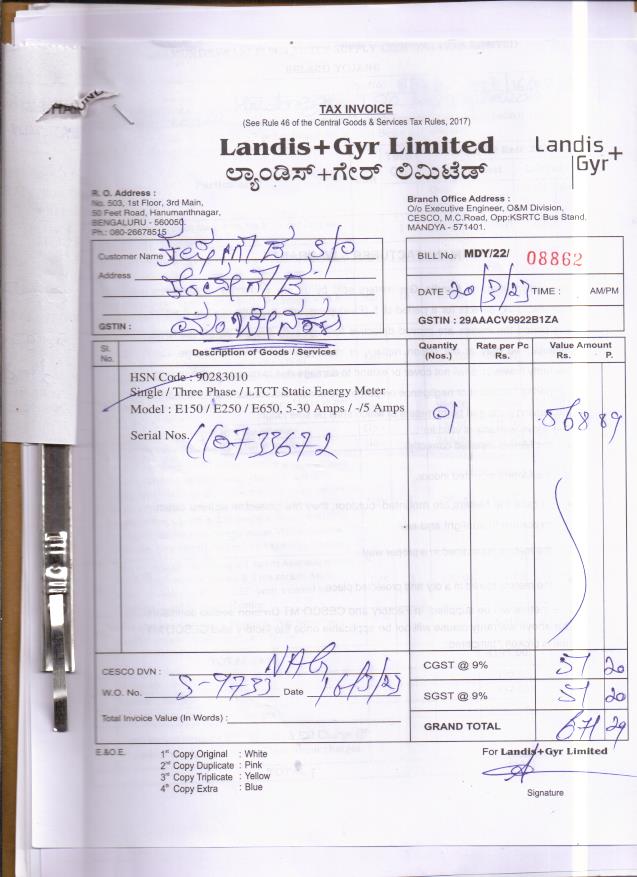 TAX INVOICE
(See Rule 46 of the Central Goods & Services Tax Rules, 2017)
Landis+Gyr Limited
ಲ್ಯಾಂಡಿಸ್+ಗೇರ್ ಲಿಮಿಟೆಡ್
Landis
Gyr+
R. O. Address :
No. 503, 1st Floor, 3rd Main,
50 Feet Road, Hanumanthnagar,
BENGALURU - 560050.
Ph.: 080-26678515
Branch Office Address :
O/o Executive Engineer, O&M Division,
CESCO, M.C.Road, Opp:KSRTC Bus Stand,
MANDYA - 571401.
Customer Name S/o
Address
GSTIN :
BILL No. MDY/22/ 08862
DATE : 20/3/23 TIME : AM/PM
GSTIN : 29AAACV9922B1ZA
Sl. No. Description of Goods / Services Quantity (Nos.) Rate per Pc Rs. Value Amount Rs. P.
HSN Code : 90283010
Single / Three Phase / LTCT Static Energy Meter
Model : E150 / E250 / E650, 5-30 Amps / -/5 Amps 01 568 89
Serial Nos.
CESCO DVN : NAG
W.O. No. S-9733 Date 16/3/23
Total Invoice Value (In Words) :
CGST @ 9% 51 20
SGST @ 9% 51 20
GRAND TOTAL 671 29
E.&O.E.
1st Copy Original : White
2nd Copy Duplicate : Pink
3rd Copy Triplicate : Yellow
4th Copy Extra : Blue
For Landis+Gyr Limited
Signature